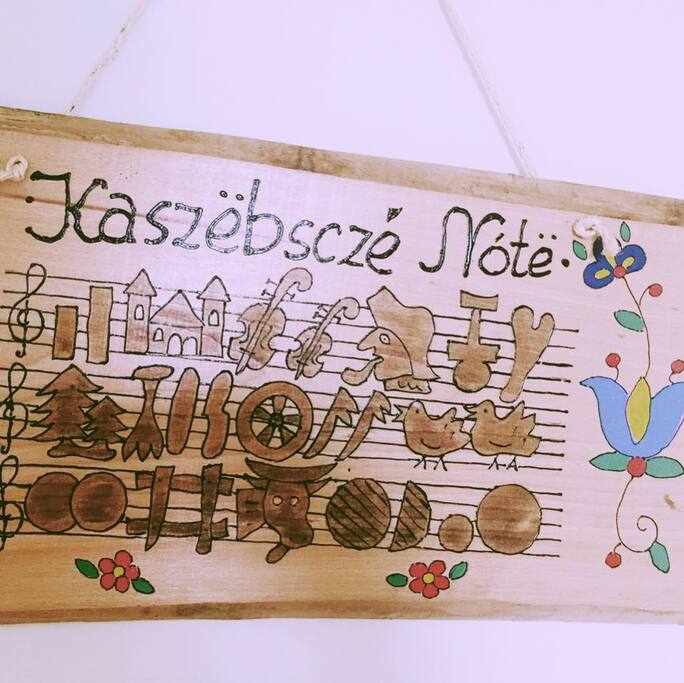 Kaszëbsczé Nótë.